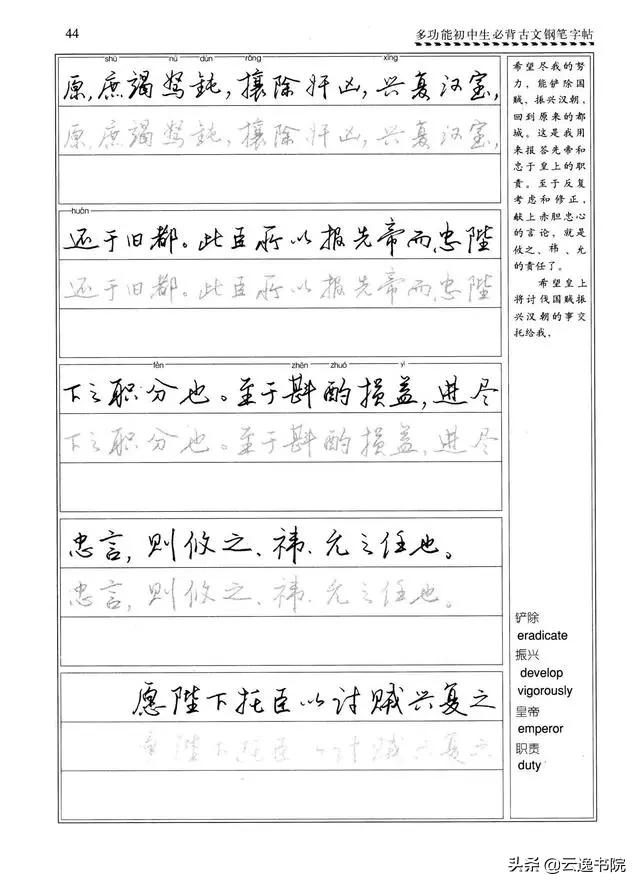 44
多功能初中生必背古文钢笔字帖
shù nú dùn rǎng xīng
原,庶竭驽钝,攘除奸凶,兴复汉室,
原,庶竭驽钝,攘除奸凶,兴复汉室,
huán
还于旧都。此臣所以报先帝而忠陛
还于旧都。此臣所以报先帝而忠陛
fèn zhēn zhuó yì
下之职分也。至于斟酌损益,进尽
下之职分也。至于斟酌损益,进尽
忠言,则攸之、祎、允之任也。
忠言,则攸之、祎、允之任也。
愿陛下托臣以讨贼兴复之
陛下托臣以讨贼兴复之
希望尽我的努
力,能铲除国
贼,振兴汉朝,
回到原来的都
城。这是我用
来报答先帝和
忠于皇上的职
责。至于反复
考虑和修正,
献上赤胆忠心
的言论,就是
攸之、祎、允
的责任了。
希望皇上
将讨伐国贼振
兴汉朝的事交
托给我,
铲除
eradicate
振兴
develop
vigorously
皇帝
emperor
职责
duty
头条 @云逸书院